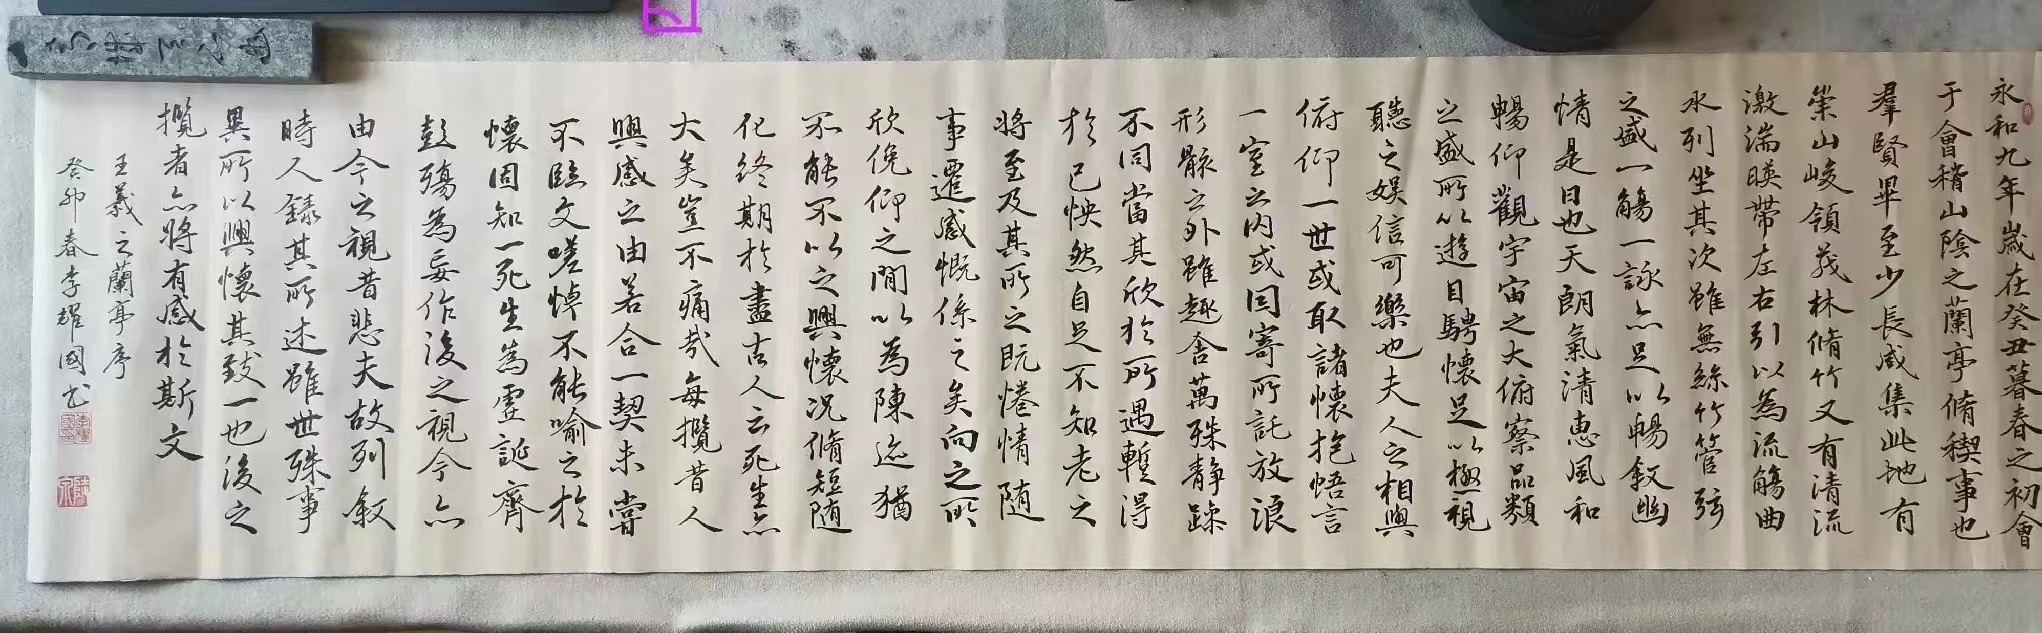 永和九年歲在癸丑暮春之初會
于會稽山陰之蘭亭脩稧事也
羣賢畢至少長咸集此地有
崇山峻領茂林脩竹又有清流
激湍暎帶左右引以為流觴曲
水列坐其次雖無絲竹管弦
之盛一觴一詠亦足以暢敘幽
情是日也天朗氣清惠風和
暢仰觀宇宙之大俯察品類
之盛所以遊目騁懷足以極視
聽之娛信可樂也夫人之相與
俯仰一世或取諸懷抱悟言
一室之內或因寄所託放浪
形骸之外雖趣舍萬殊靜躁
不同當其欣於所遇蹔得
於己怏然自足不知老之
將至及其所之既惓情隨
事遷感慨係之矣向之所
欣俛仰之間以為陳迹猶
不能不以之興懷況脩短隨
化終期於盡古人云死生亦
大矣豈不痛哉每攬昔人
興感之由若合一契未嘗
不臨文嗟悼不能喻之於
懷固知一死生為虛誕齊
彭殤為妄作後之視今亦
由今之視昔悲夫故列敘
時人錄其所述雖世殊事
異所以興懷其致一也後之
攬者亦將有感於斯文
王羲之蘭亭序
癸卯春李耀國書